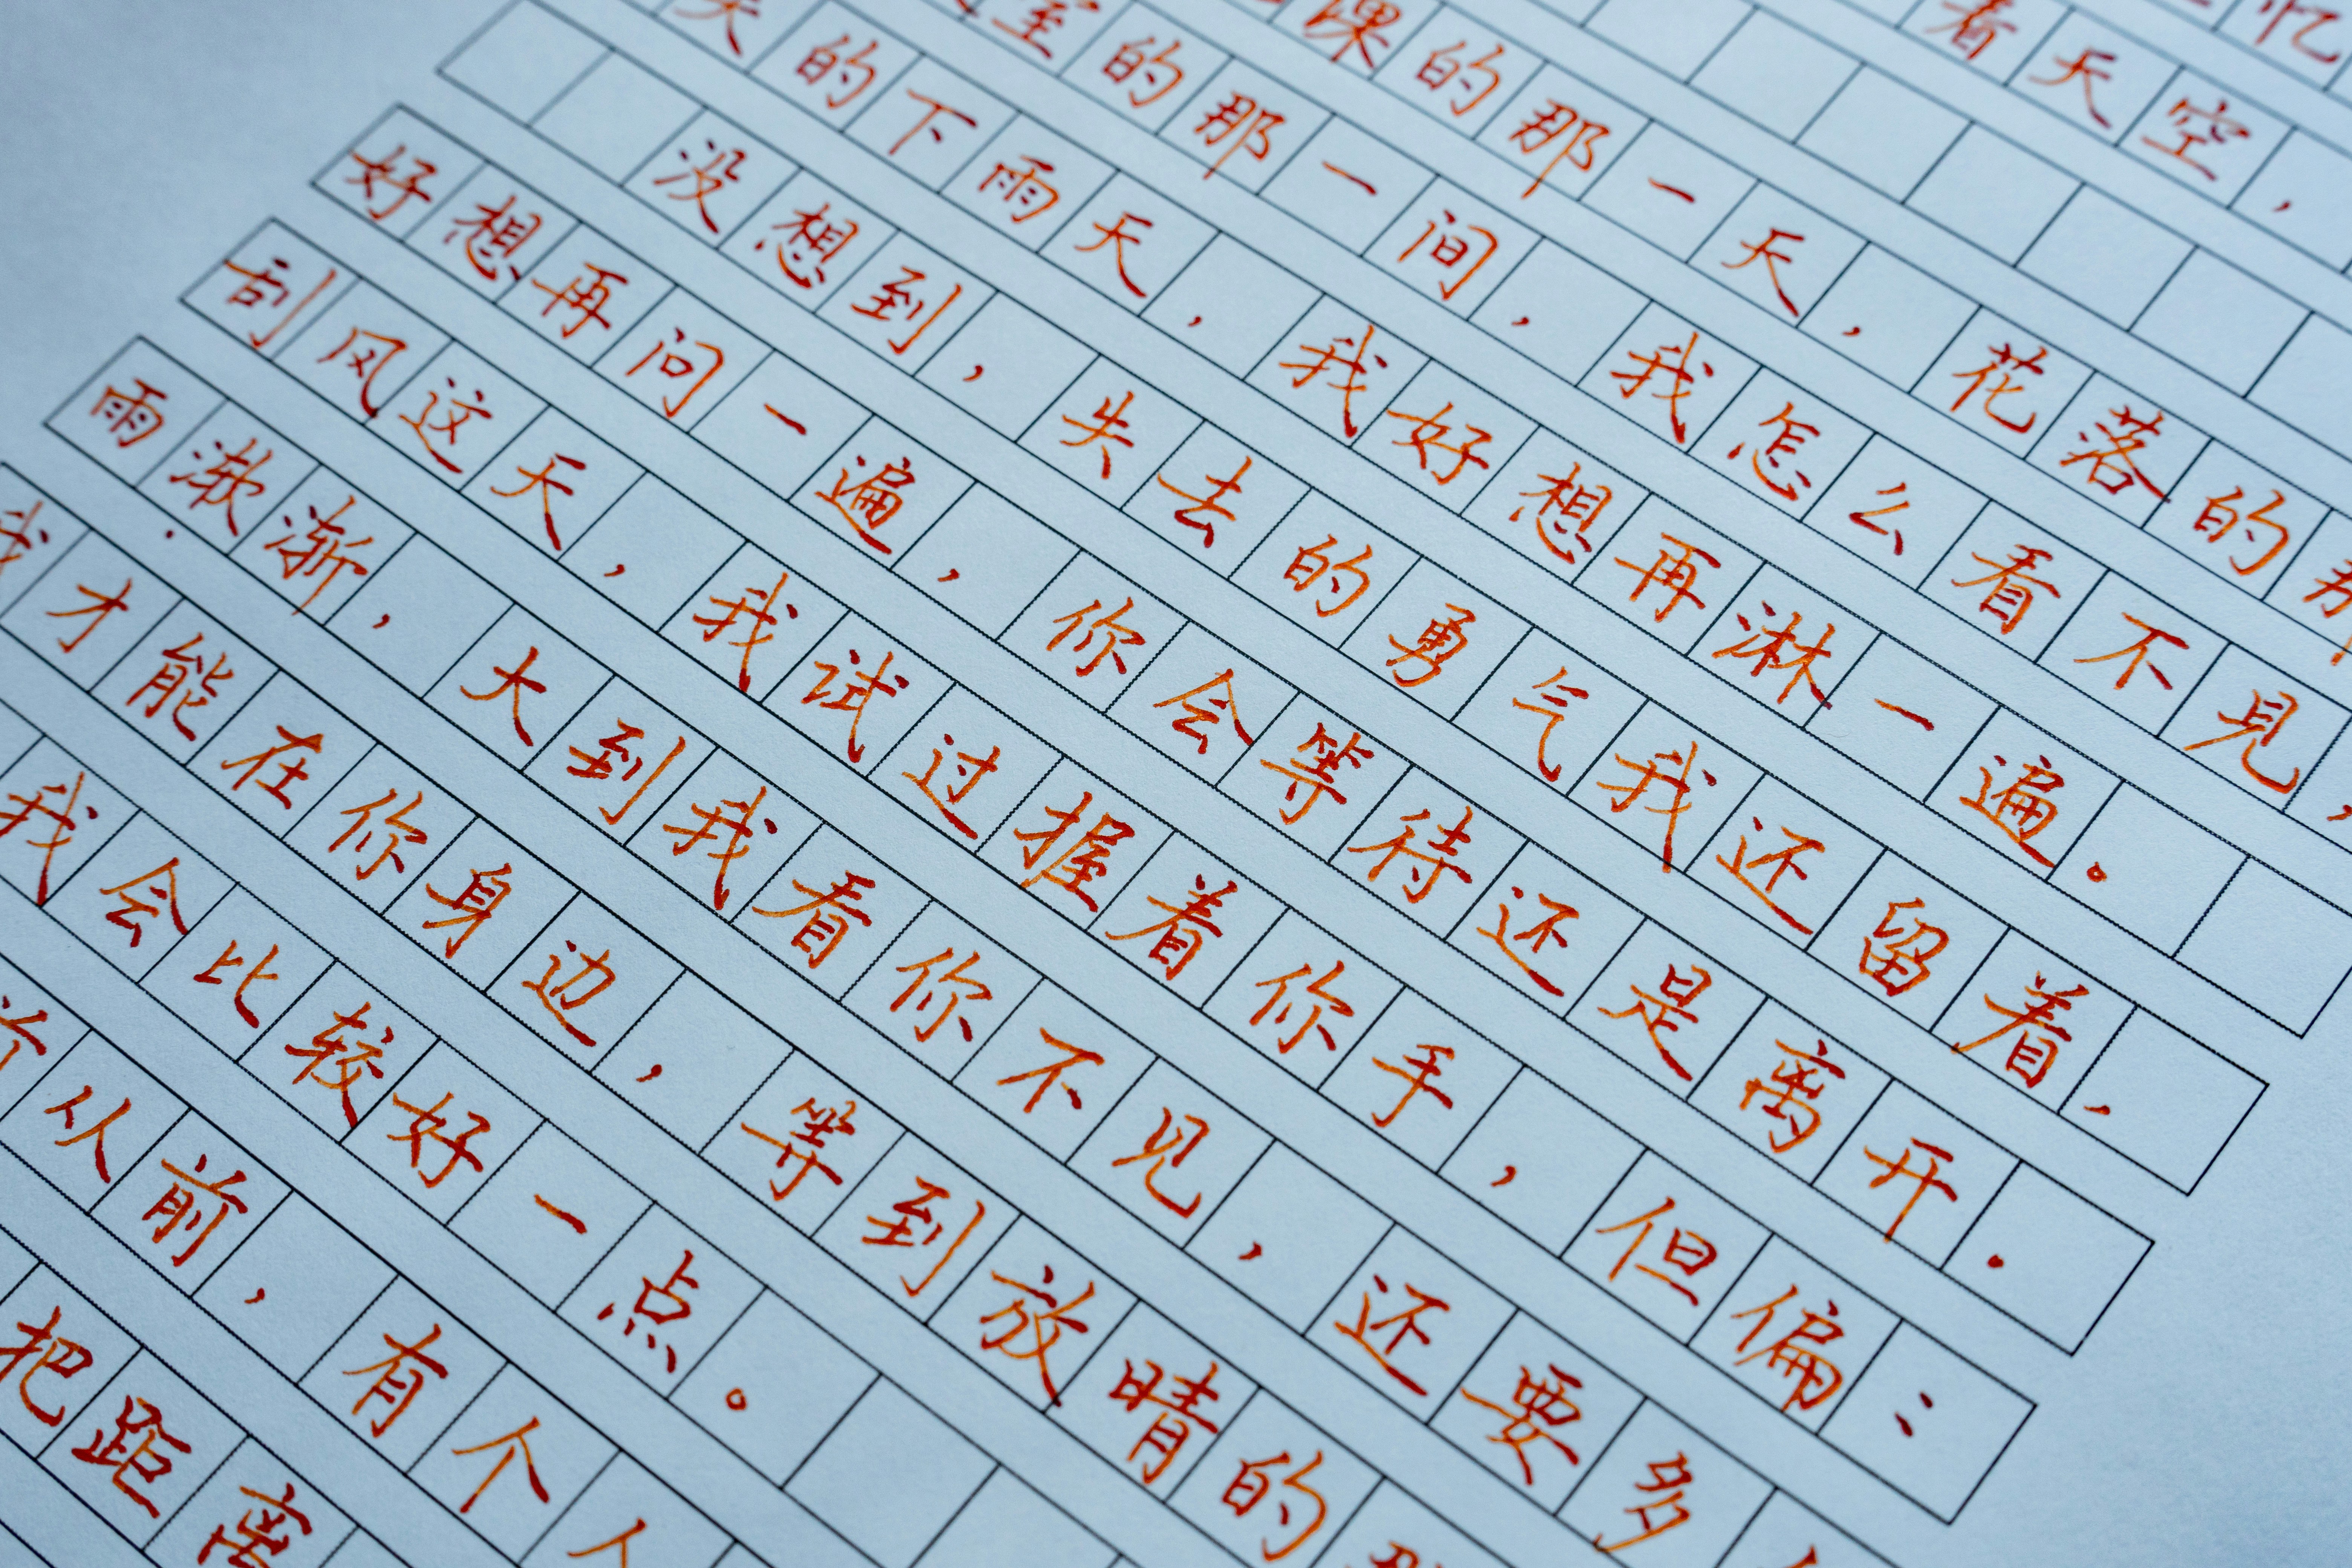 忆
看天空,
课的那一天,花落的那
室的那一间,我怎么看不见,
失的下雨天,我好想再淋一遍。
没想到,失去的勇气我还留着,
好想再问一遍,你会等待还是离开.
刮风这天,我试过握着你手,但偏:
雨渐,大到我看你不见,还要多
我才能在你身边,等到放晴的那
我会比较好一点。
从前,有个人
把距离